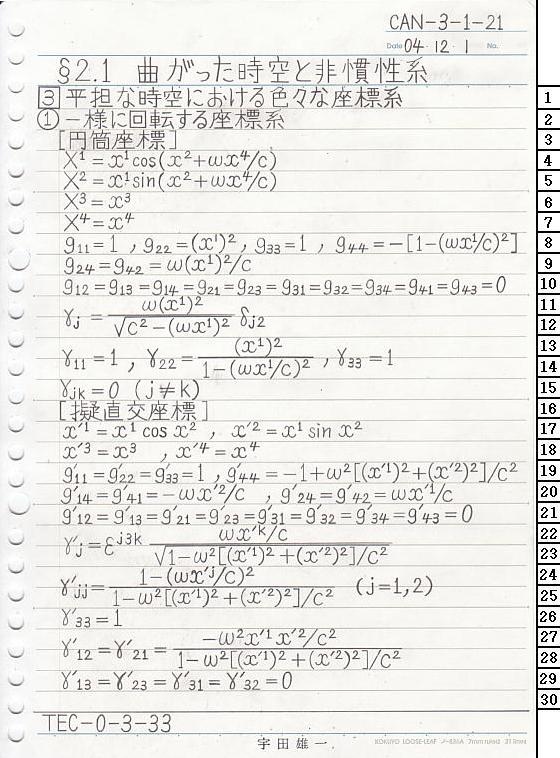 CAN-3-1-21
Date 04・12・1 No.
§2.1 曲がった時空と非慣性系
③ 平担な時空における色々な座標系
① 一様に回転する座標系
[円筒座標]
X¹=x¹cos(x²+ωx⁴/c)
X²=x¹sin(x²+ωx⁴/c)
X³=x³
X⁴=x⁴
g₁₁=1 , g₂₂=(x¹)² , g₃₃=1 , g₄₄=-[1-(ωx¹/c)²]
g₂₄=g₄₂=ω(x¹)²/c
g₁₂=g₁₃=g₁₄=g₂₁=g₂₃=g₃₁=g₃₂=g₃₄=g₄₁=g₄₃=0
γⱼ= ω(x¹)² / √(c²-(ωx¹)²) δⱼ₂
γ₁₁=1 , γ₂₂= (x¹)² / 1-(ωx¹/c)² , γ₃₃=1
γⱼₖ=0 (j≠k)
[擬直交座標]
x'¹=x¹cos x² , x'²=x¹sin x²
x'³=x³ , x'⁴=x⁴
g'₁₁=g'₂₂=g'₃₃=1 , g'₄₄=-1+ω²[(x'¹)²+(x'²)²]/c²
g'₁₄=g'₄₁=-ωx'²/c , g'₂₄=g'₄₂=ωx'¹/c
g'₁₂=g'₁₃=g'₂₁=g'₂₃=g'₃₁=g'₃₂=g'₃₄=g'₄₃=0
γ'ⱼ=ε^{j3k} ωx'ᵏ/c / √(1-ω²[(x'¹)²+(x'²)²]/c²)
γ'ⱼⱼ= 1-(ωx'ʲ/c)² / 1-ω²[(x'¹)²+(x'²)²]/c² (j=1,2)
γ'₃₃=1
γ'₁₂=γ'₂₁= -ω²x'¹x'²/c² / 1-ω²[(x'¹)²+(x'²)²]/c²
γ'₁₃=γ'₂₃=γ'₃₁=γ'₃₂=0
TEC-0-3-33
宇田雄一
KOKUYO LOOSE-LEAF ノ-836A 7mm ruled 31 lines
1
2
3
4
5
6
7
8
9
10
11
12
13
14
15
16
17
18
19
20
21
22
23
24
25
26
27
28
29
30